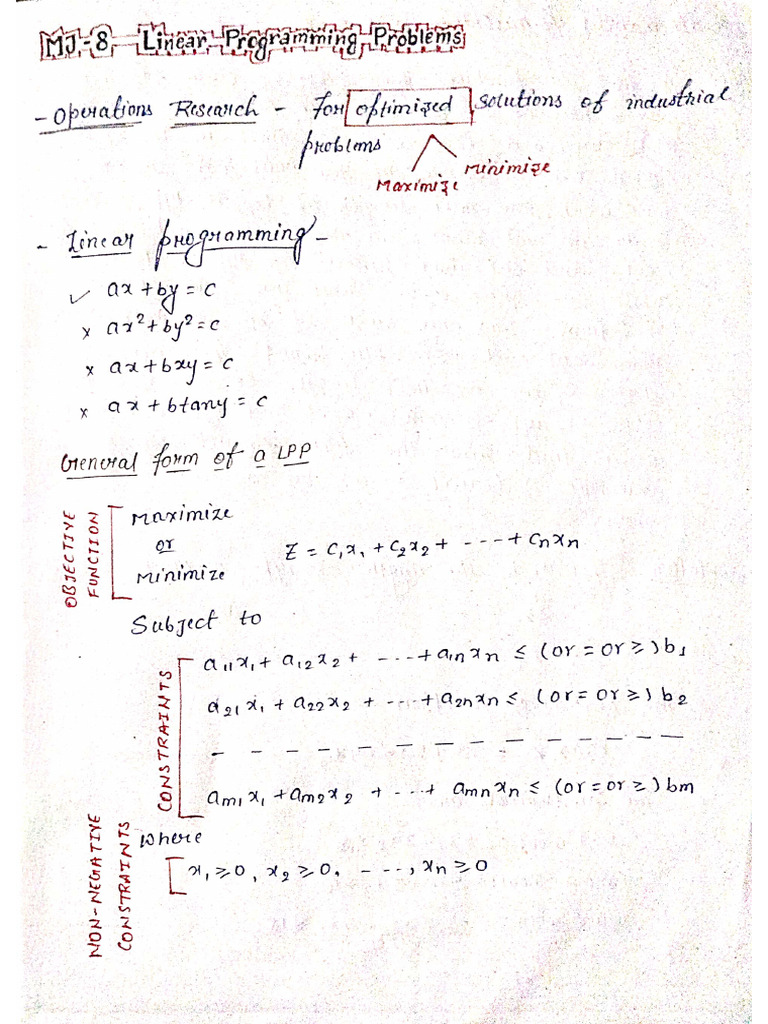 MJ-8 Linear Programming Problems
- Operations Research - For optimized solutions of industrial
problems
Maximize Minimize
- Linear programming -
✓ ax + by = c
x ax² + by² = c
x ax + bxy = c
x ax + btany = c
General form of a LPP
OBJECTIVE FUNCTION
Maximize
or
Minimize
Z = C₁x₁ + C₂x₂ + ---- + Cₙxₙ
Subject to
CONSTRAINTS
a₁₁x₁ + a₁₂x₂ + ---- + a₁ₙxₙ ≤ (or = or ≥) b₁
a₂₁x₁ + a₂₂x₂ + ---- + a₂ₙxₙ ≤ (or = or ≥) b₂
- - - - - - - - - - - - -
aₘ₁x₁ + aₘ₂x₂ + ---- + aₘₙxₙ ≤ (or = or ≥) bm
where
NON-NEGATIVE CONSTRAINTS
x₁ ≥ 0, x₂ ≥ 0, ----, xₙ ≥ 0